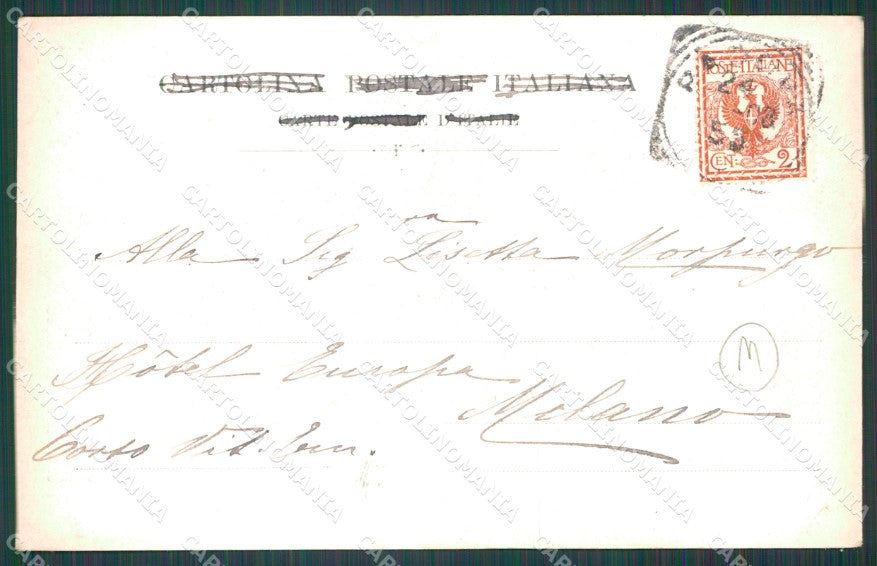 CARTOLINA POSTALE ITALIANA
CARTE POSTALE D'ITALIE
POSTE ITALIANE
CEN. 2
Alla Sig.ra Lisetta Morpurgo
Hôtel Europa
Milano
Corso Vit. Em.
M
CARTOLINOMANIA